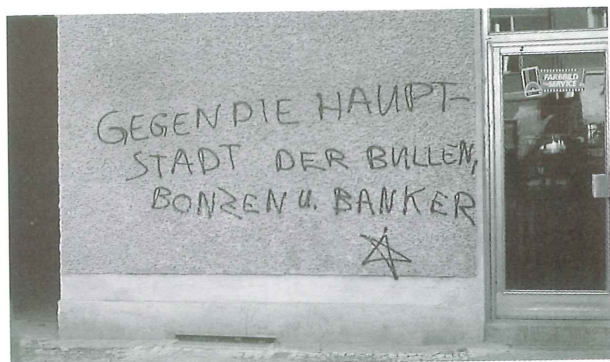 GEGEN DIE HAUPT-
STADT DER BULLEN,
BONZEN U. BANKER
FARBBILD
SERVICE